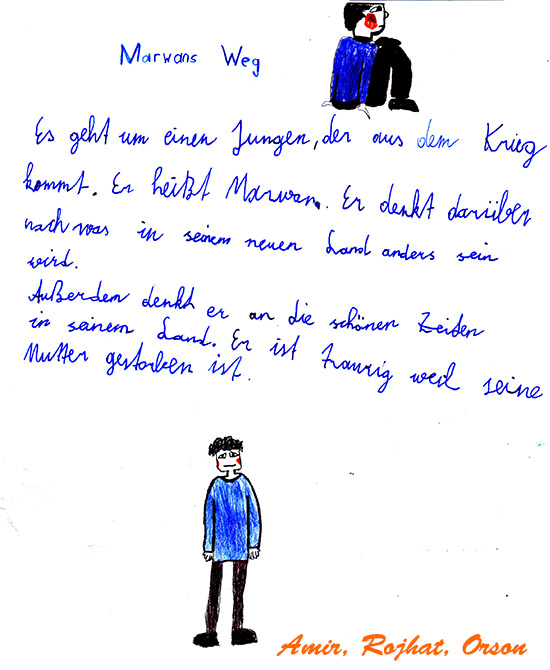 Marwans Weg
Es geht um einen Jungen, der aus dem Krieg
kommt. Er heißt Marwan. Er denkt darüber
nach was in seinem neuen Land anders sein
wird.
Außerdem denkt er an die schönen Zeiten
in seinem Land. Er ist traurig weil seine
Mutter gestorben ist.
Amir, Rojhat, Orson